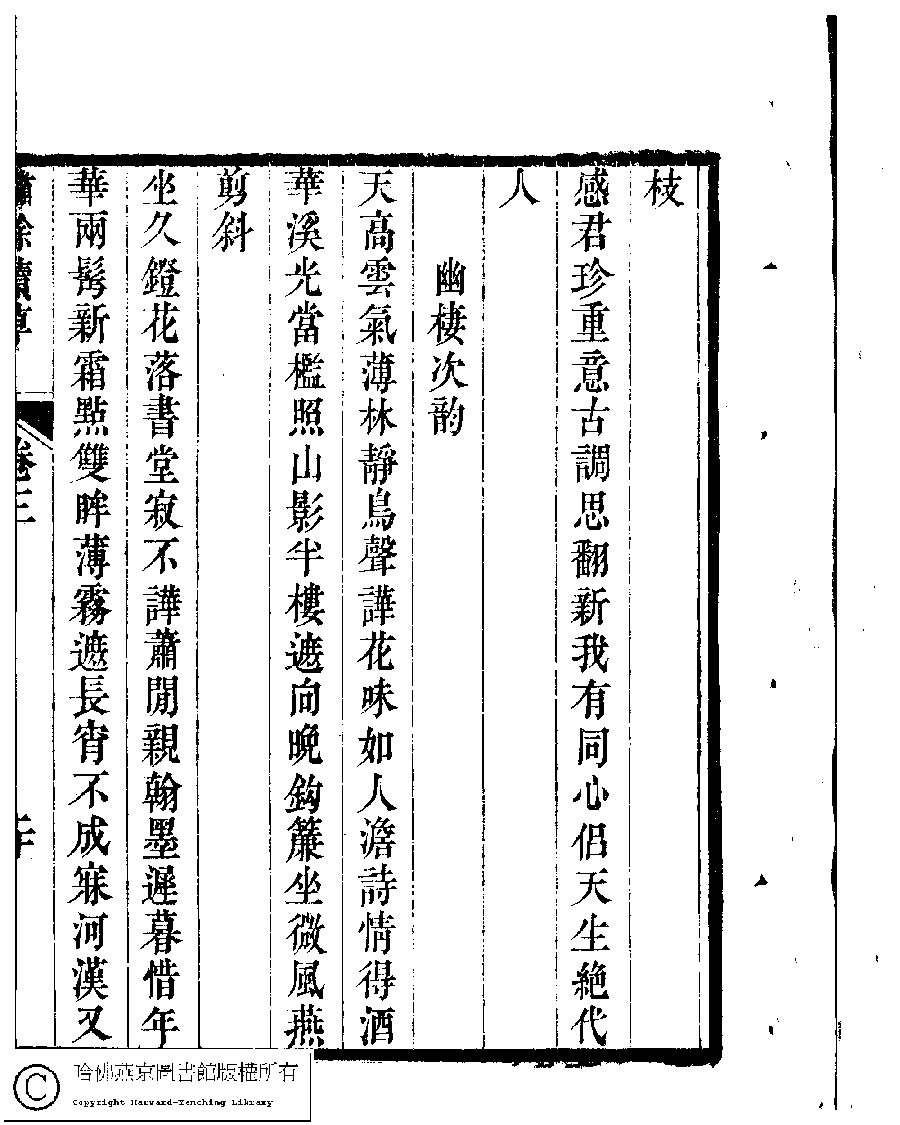 枝
感君珍重意古調思翻新我有同心侶天生絶代
人
幽棲次韵
天高雲氣薄林靜鳥聲譁花味如人澹詩情得酒
華溪光當檻照山影半樓遮向晚鈎簾坐微風燕
剪斜
坐久鐙花落書堂寂不譁蕭閒親翰墨遲暮惜年
華兩鬢新霜點雙眸薄霧遮長宵不成寐河漢又
卷三
哈佛燕京圖書館版權所有
Copyright Harvard-Yenching Library